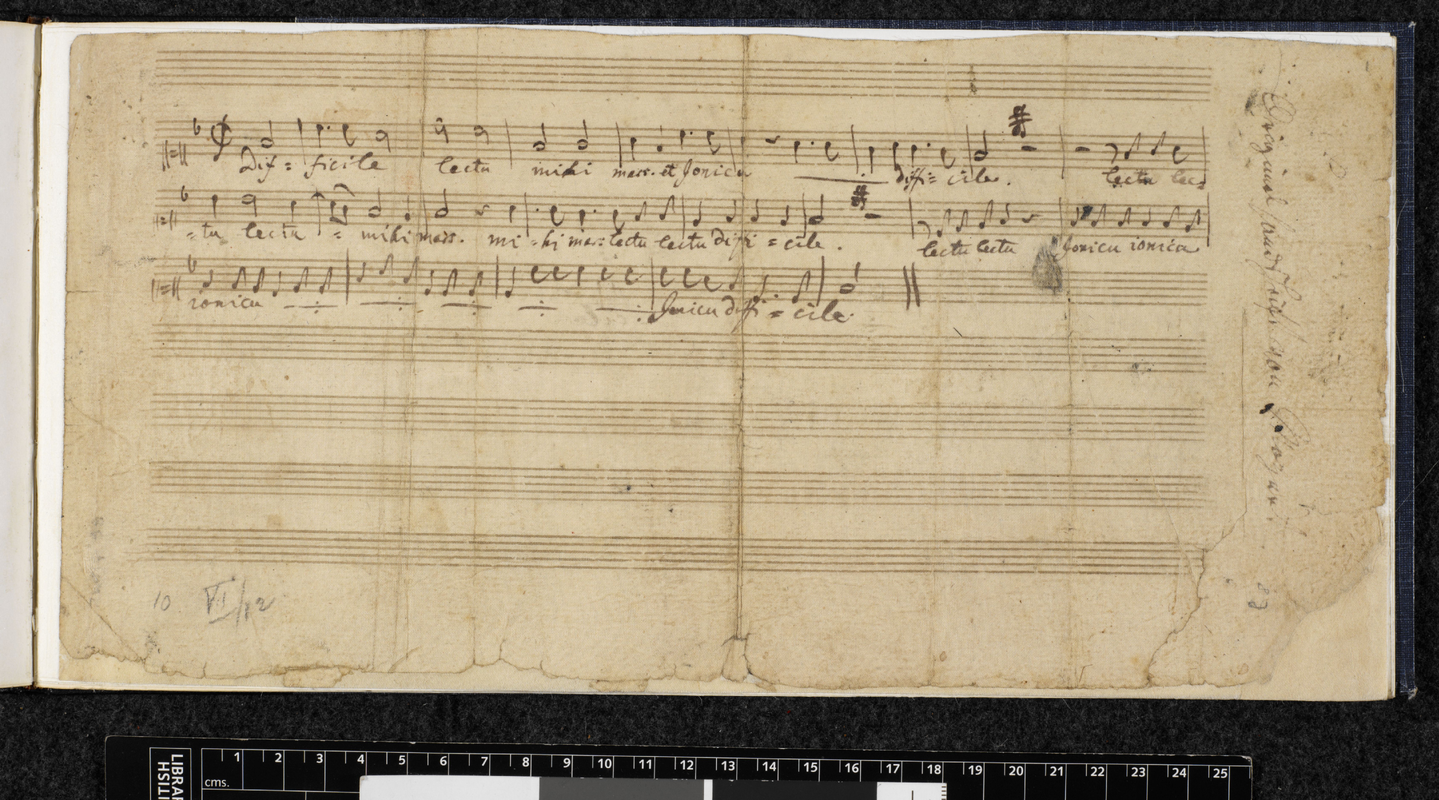 Dif= ficile lectu mihi mars. et Jonicu diffi= cile. lectu lec
=tu lectu = mihi mars. mi =hi mar: lectu lectu difi =cile. lectu lectu Jonicu ionicu
ionicu Jonicu diffi = cile.
Original von Mozart
10 VI/12
cms. 1 2 3 4 5 6 7 8 9 10 11 12 13 14 15 16 17 18 19 20 21 22 23 24 25